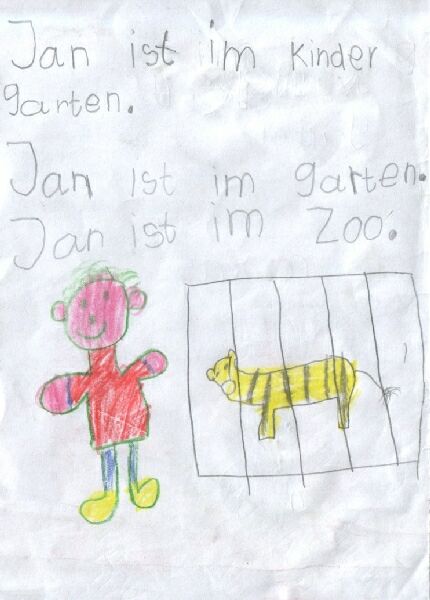 Jan ist im Kinder
garten.
Jan ist im garten.
Jan ist im Zoo.